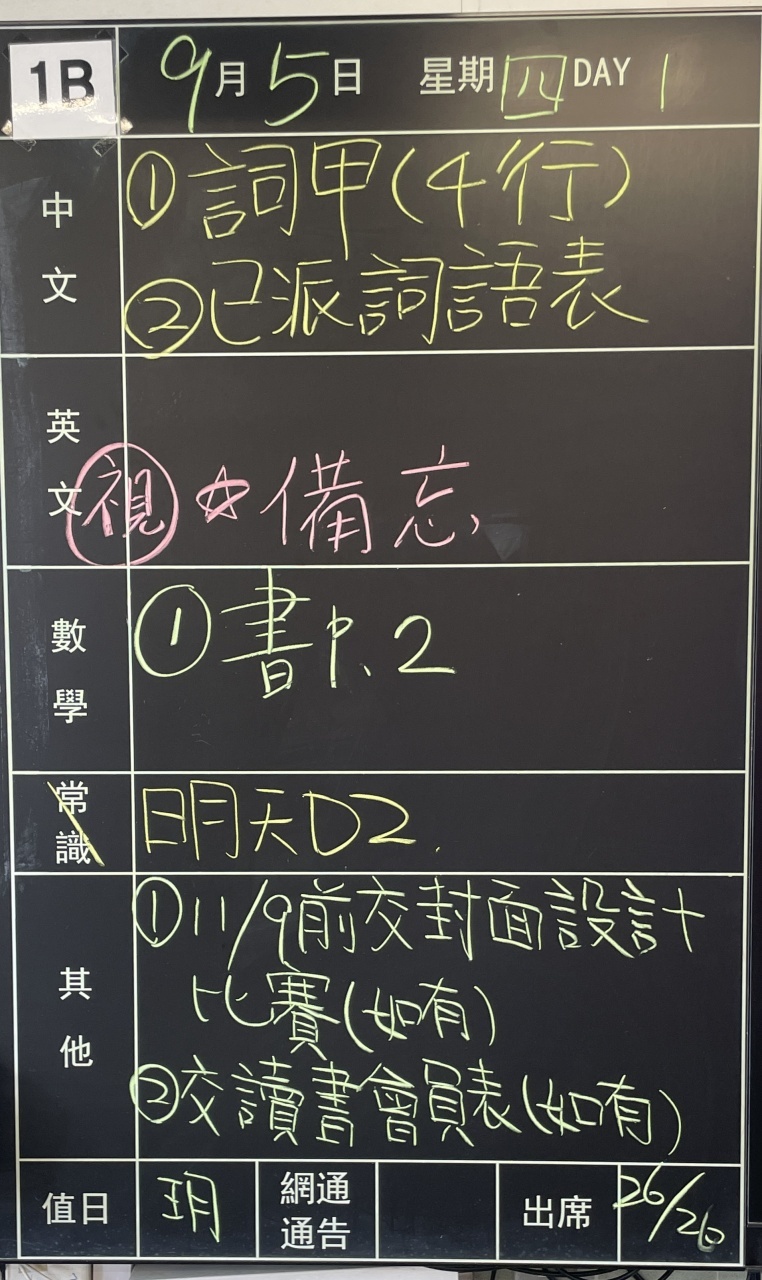 1B 9月5日 星期四 DAY 1
中文
①詞甲(4行)
②已派詞語表
英文
視 ☆備忘
數學
①書p.2
常識
明天D2.
其他
①11/9前交封面設計
比賽(如有)
②交讀書會員表(如有)
值日 玥 網通通告 出席 26/26